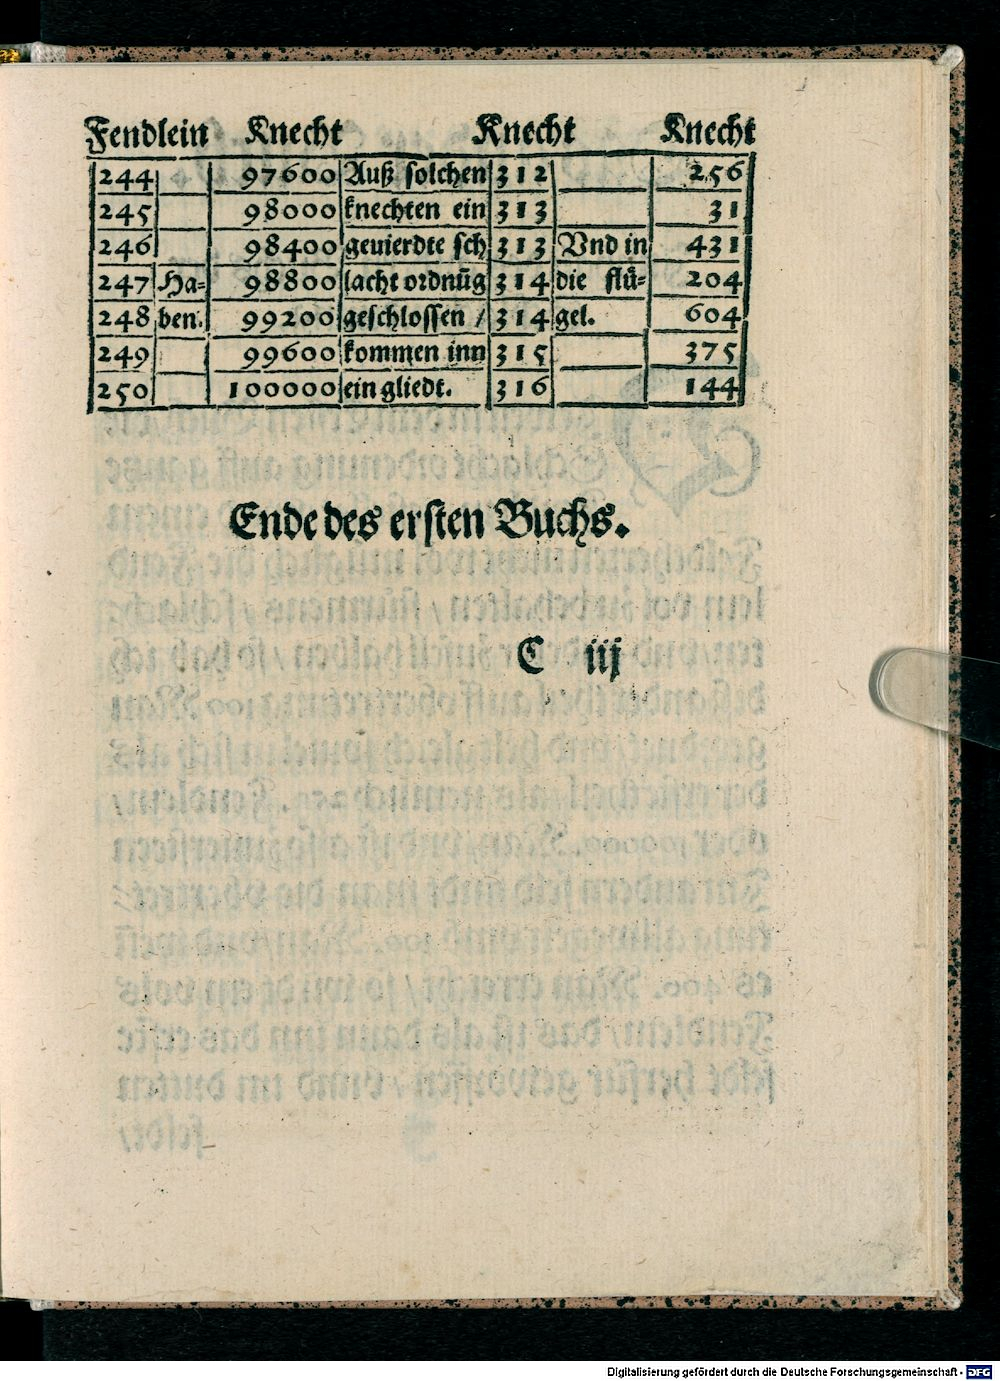 Fendlein Knecht Knecht Knecht
244 97600 Auß solchen 312 256
245 98000 knechten ein 313 31
246 98400 geuierdte sch 313 Vnd in 431
247 Ha= 98800 lacht ordnūg 314 die flü= 204
248 ben. 99200 geschlossen / 314 gel. 604
249 99600 kommen inn 315 375
250 100000 ein gliedt. 316 144
Ende des ersten Buchs.
C iij
Digitalisierung gefördert durch die Deutsche Forschungsgemeinschaft - DFG